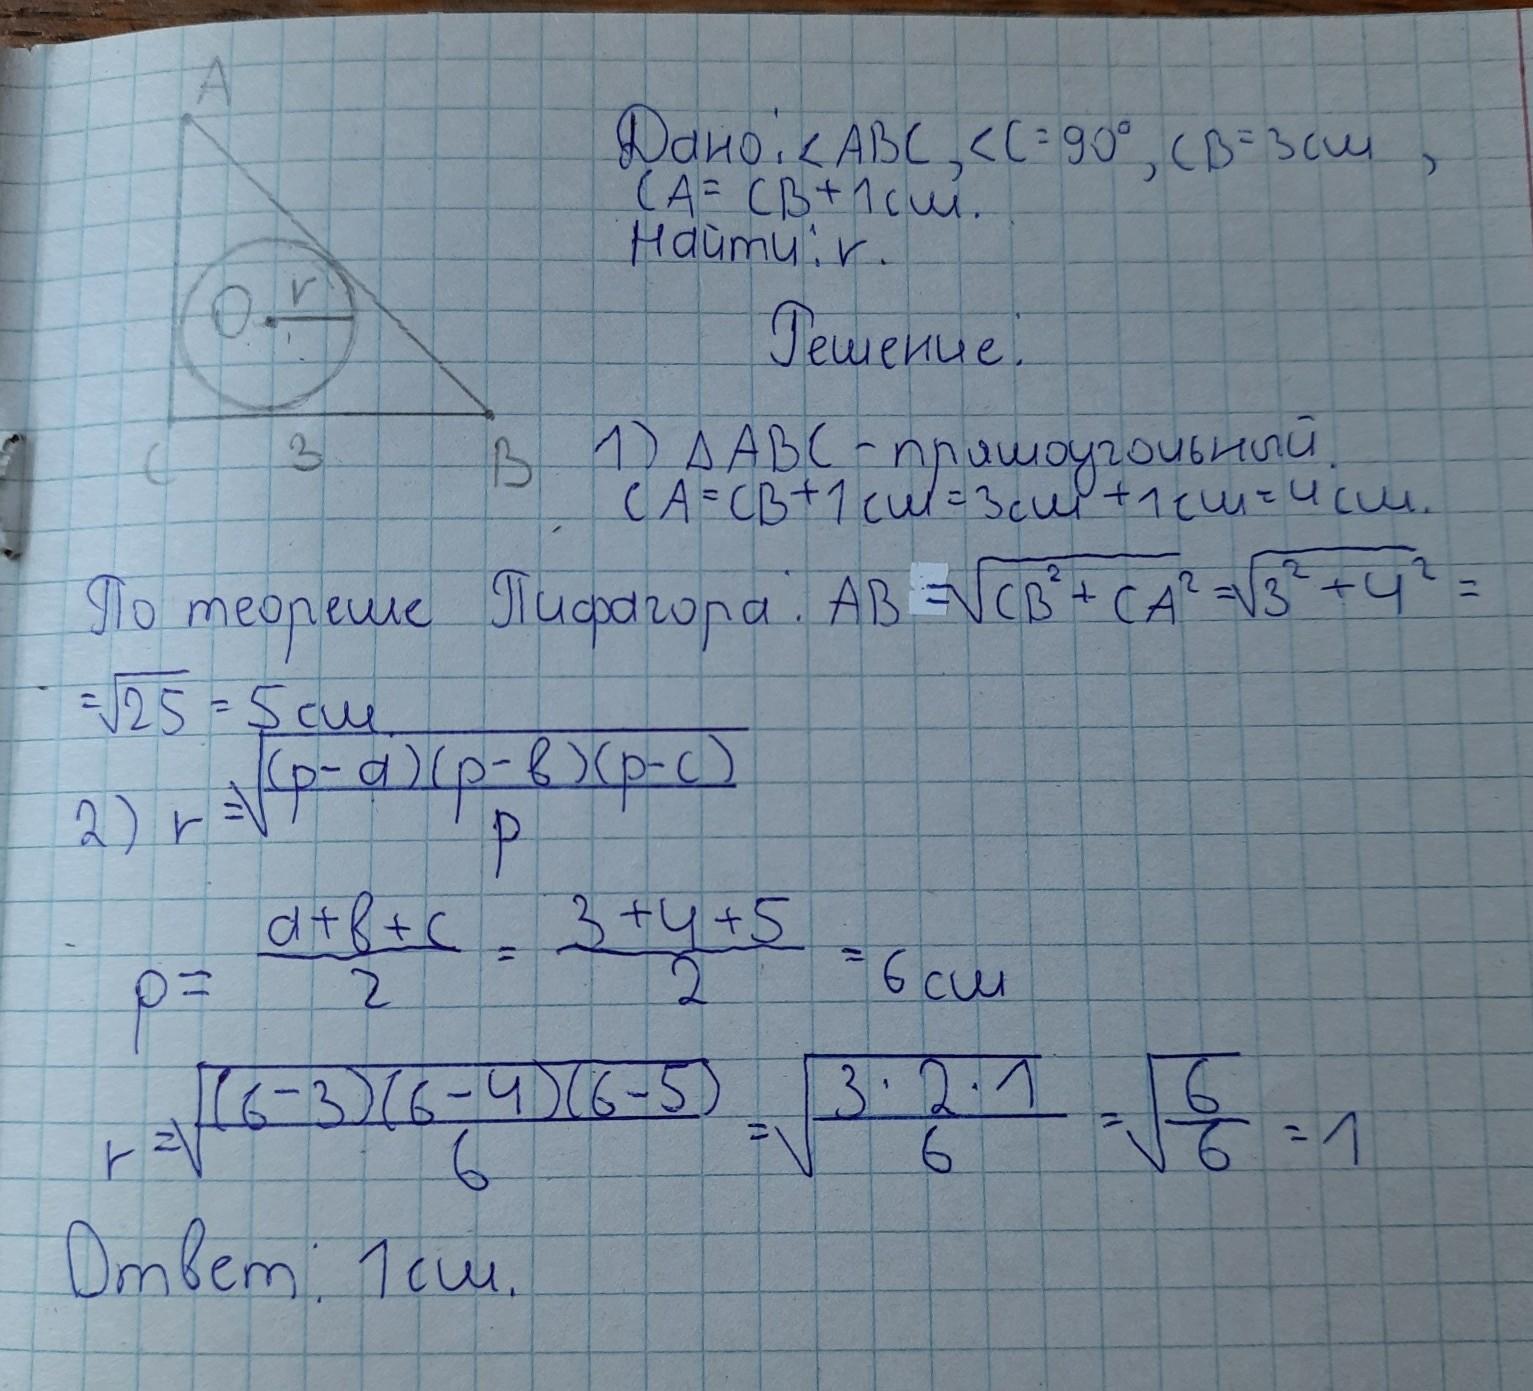 A
Дано: <ABC, <C=90°, CB=3см,
CA= CB+1см.
Найти: r.
O r
Решение:
C 3 B
1) △ABC - прямоугольный.
CA=CB+1см=3см+1см=4см.
По теореме Пифагора: AB =√(CB²+CA²)=√(3²+4²)=
=√25 = 5см
2) r=√((p-a)(p-b)(p-c)/p)
p= (a+b+c)/2 = (3+4+5)/2 = 6см
r=√((6-3)(6-4)(6-5)/6) =√(3·2·1/6) =√(6/6) =1
Ответ: 1см.